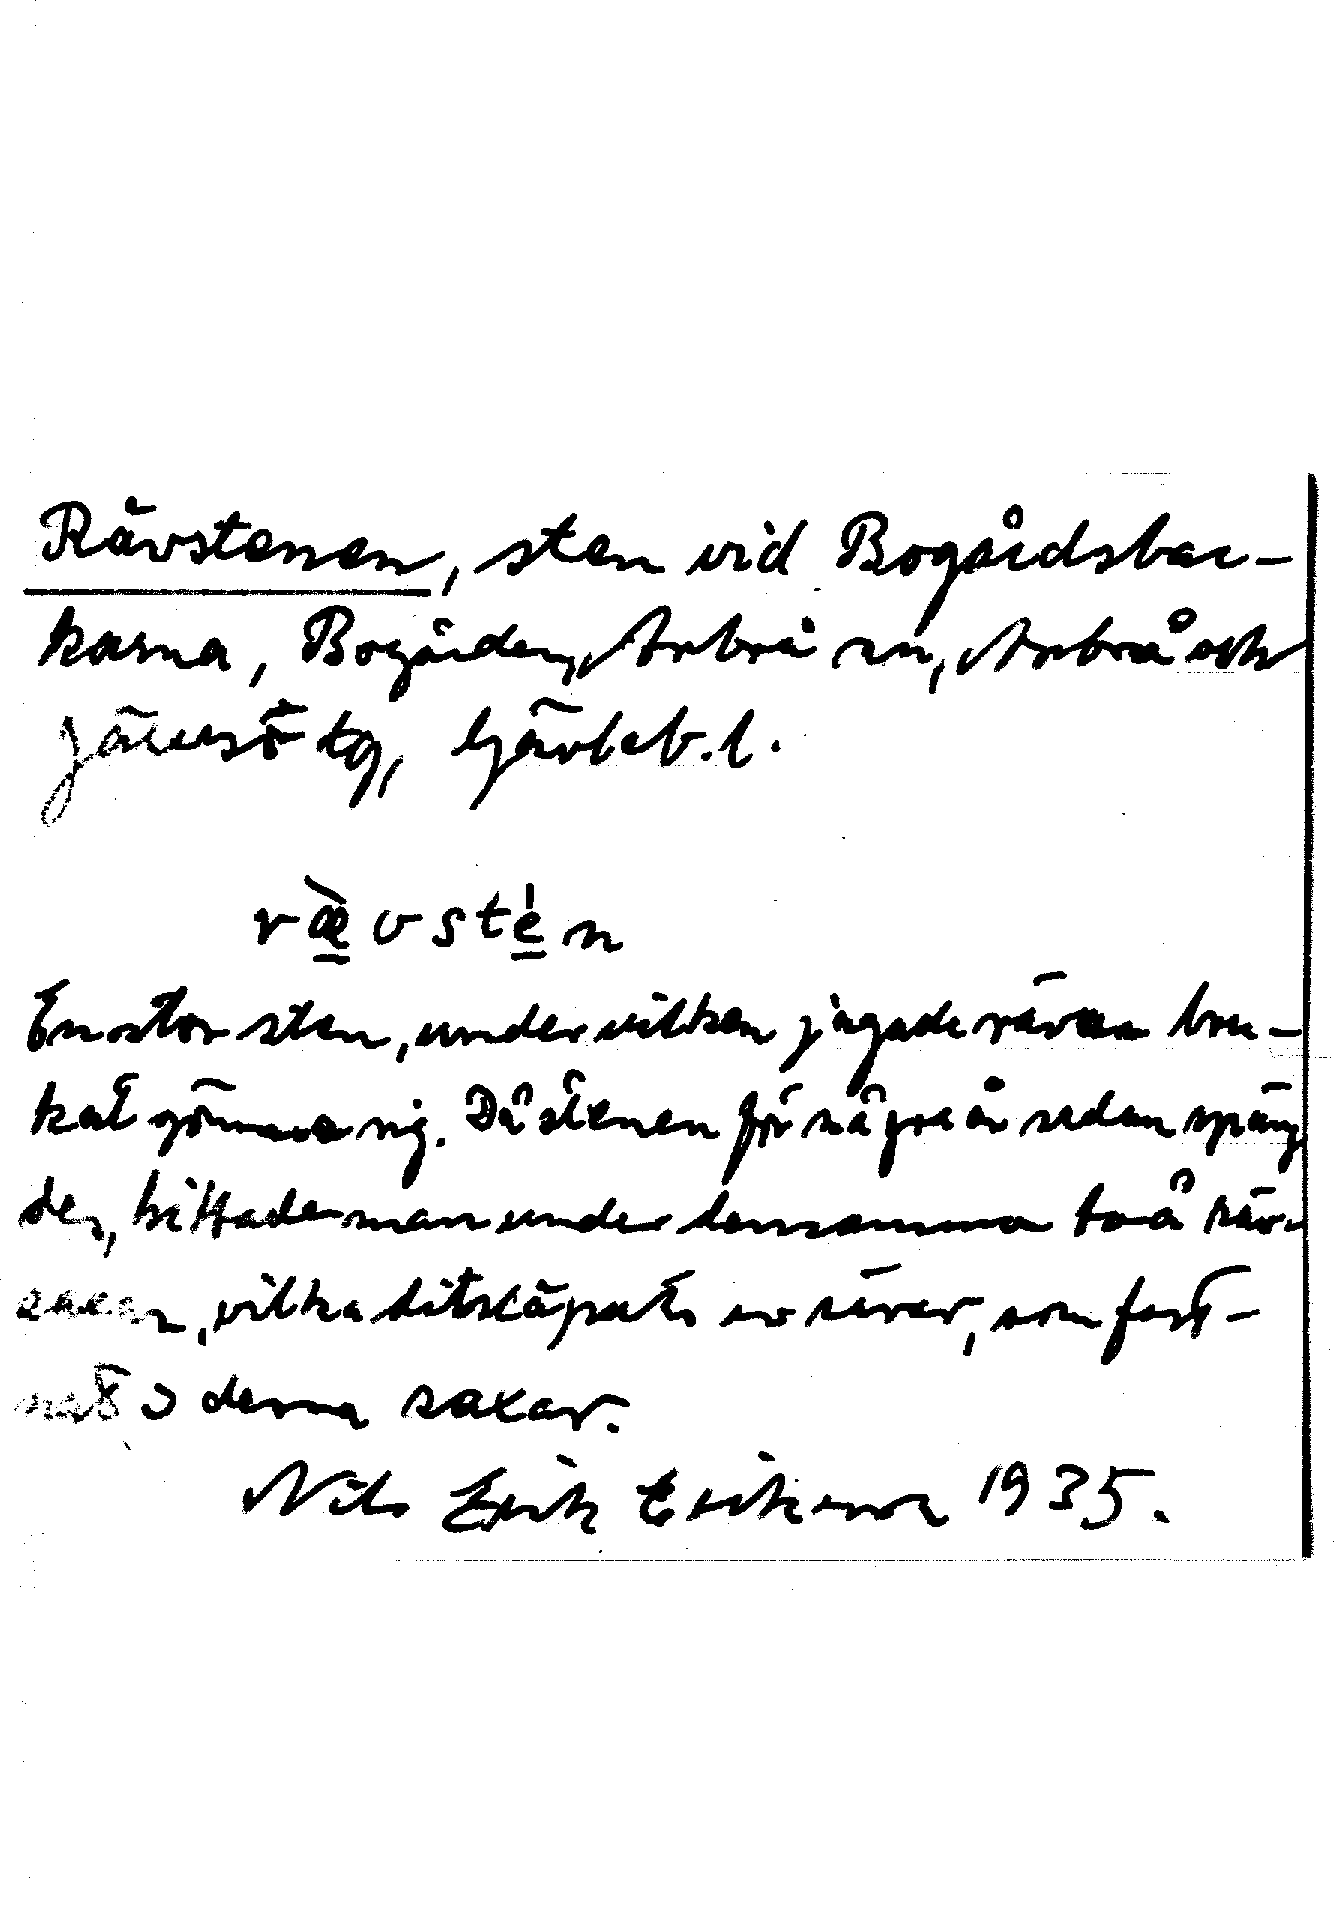 Rävstenen, sten vid Bogårdsbac-
karna, Bogården, Arbrå sn, Arbrå och
Järvsö tg, Gävleb. l.
rævsten
En stor sten, under vilken jagade rävar bru-
kat gömma sig. Då stenen för några år sedan spräng
des, hittade man under densamma två räv-
saxar, vilka ditsläpats av rävar, som fast-
nat i denna saxar.
Nils Erik Eriksson 1935.